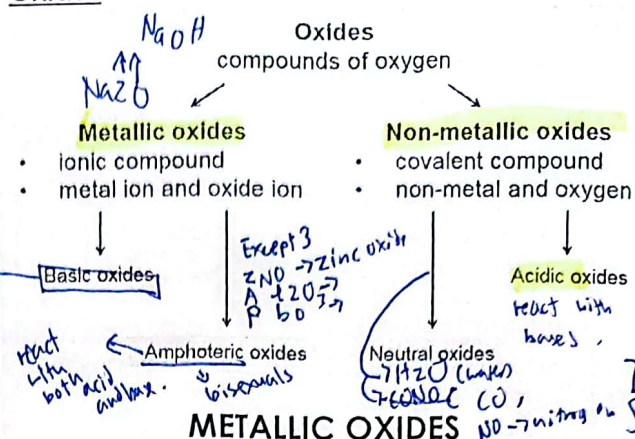 NaOH
Na2O
Oxides
compounds of oxygen
Metallic oxides
• ionic compound
• metal ion and oxide ion
Non-metallic oxides
• covalent compound
• non-metal and oxygen
Except 3
ZNO → zinc oxide
A l2O3 →
P bO →
Basic oxides
Acidic oxides
react with
bases.
react
with
both acid
and base.
Amphoteric oxides
bisexuals
Neutral oxides
→ H2O (water)
CO,
NO → nitrogen
METALLIC OXIDES